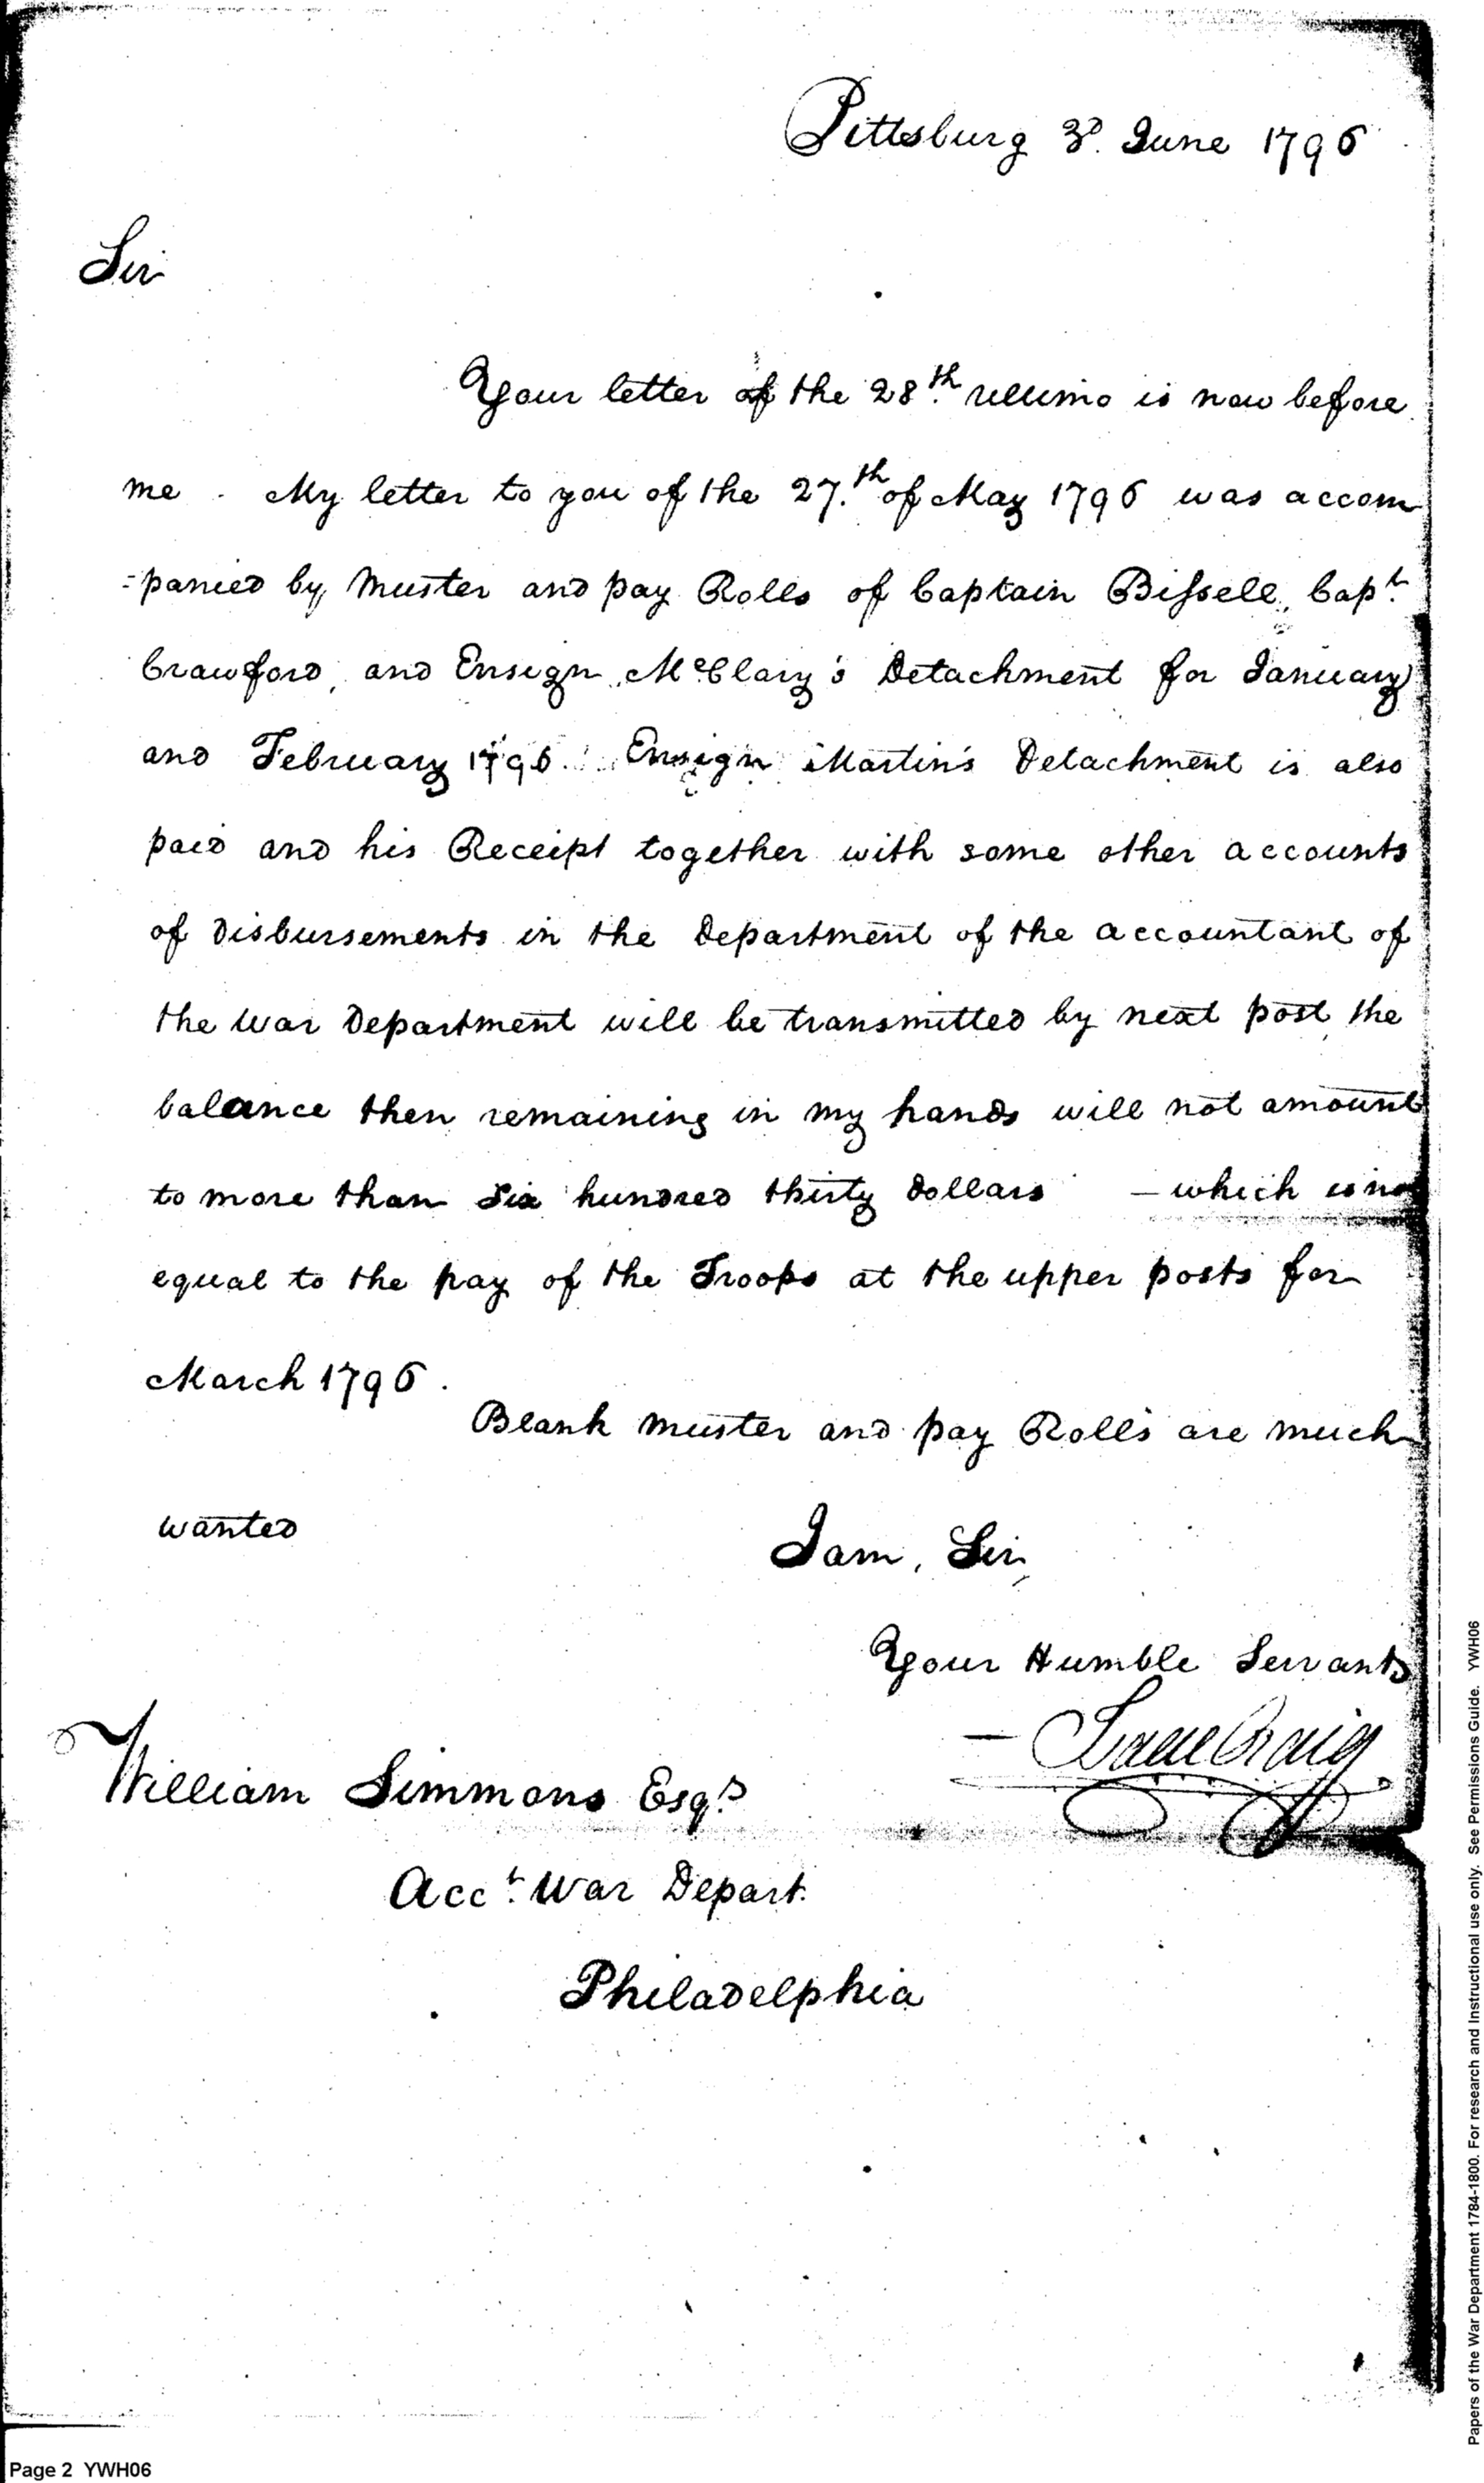 Pittsburg 3d. June 1796
Sir
Your letter of the 28th. ultimo is now before
me. My letter to you of the 27.th of May 1796 was accom
=panied by Muster and pay Rolls of Captain Bissell, Capt.
Crawford, and Ensign McClary's Detachment for January
and February 1796. Ensign Martin's Detachment is also
paid and his Receipt together with some other accounts
of Disbursements in the Department of the accountant of
the War Department will be transmitted by next post, the
balance then remaining in my hands will not amount
to more than Six hundred thirty Dollars – which is not
equal to the pay of the Troops at the upper posts for
March 1796.
Blank muster and pay Rolls are much
wanted
I am, Sir,
Your Humble Servant
Isaac Craig
William Simmons Esqr.
Acct. War Depart.
Philadelphia
Page 2 YWH06
Papers of the War Department 1784-1800. For research and Instructional use only. See Permissions Guide. YWH06